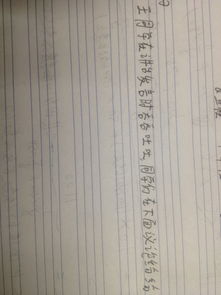 王同学在讲台发言时吞吞吐吐,同学们在下面议论纷纷